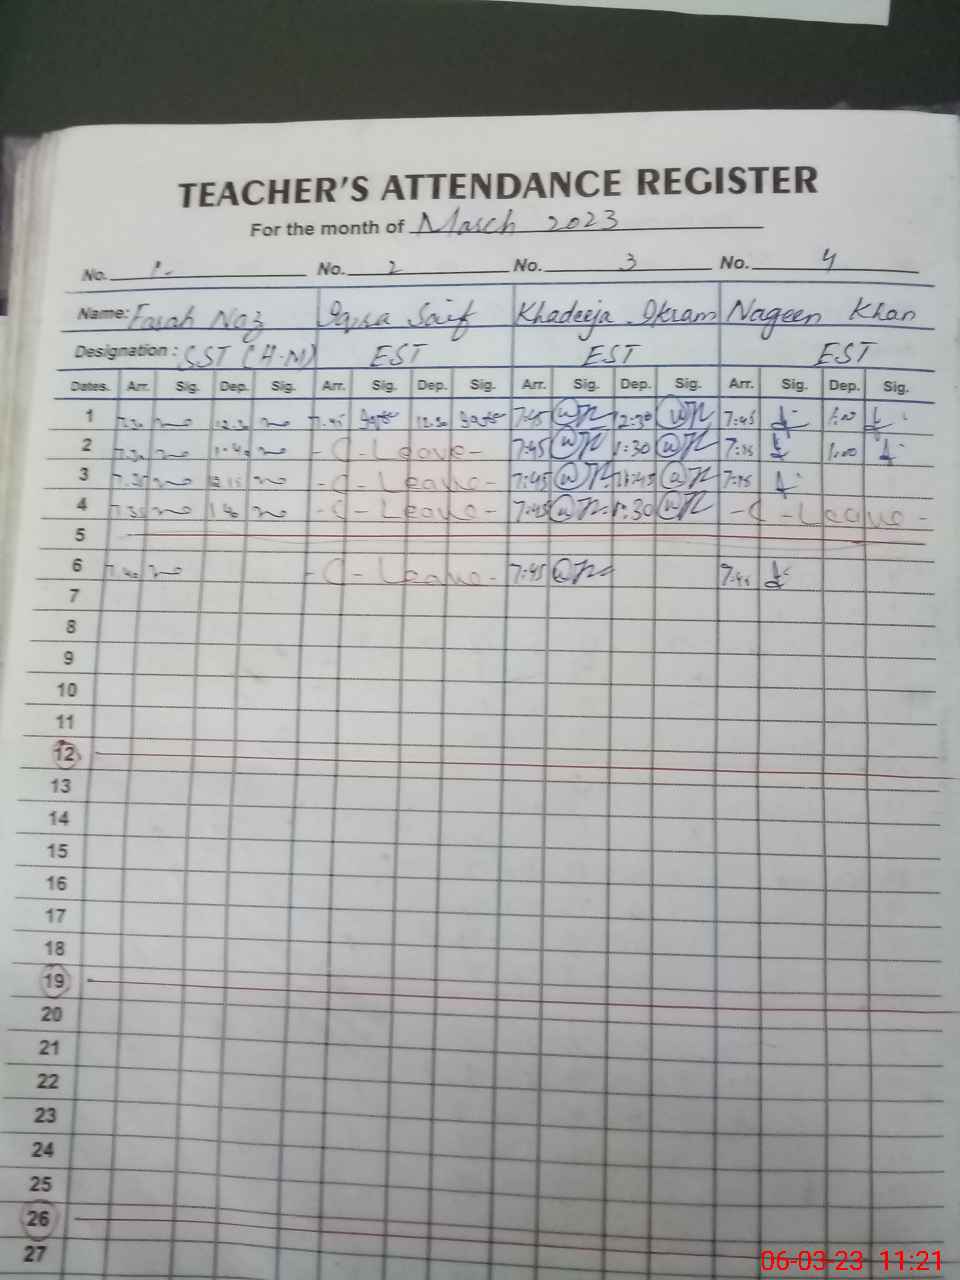 TEACHER'S ATTENDANCE REGISTER
For the month of March 2023
No. 1- No. 2 No. 3 No. 4
Name: Farah Naz Saif Khadeeja Ikram Nageen Khan
Designation: SST (H.M) EST EST EST
Dates. Arr. Sig. Dep. Sig. Arr. Sig. Dep. Sig. Arr. Sig. Dep. Sig. Arr. Sig. Dep. Sig.
1 7.30 12.30 7.45 12.30 7:45 12:30 7:45 1:00
2 7.30 1.40 -C-Leave- 7:45 1:30 7:45 1:00
3 12.15 -C-Leave- 7:45 7:45
4 7.35 1.40 -C-Leave- 7:45 1:30 -C-Leave-
5
6 7.40 -C-Leave- 7:45 7:45
7
8
9
10
11
12
13
14
15
16
17
18
19
20
21
22
23
24
25
26
27
06-03-23 11:21